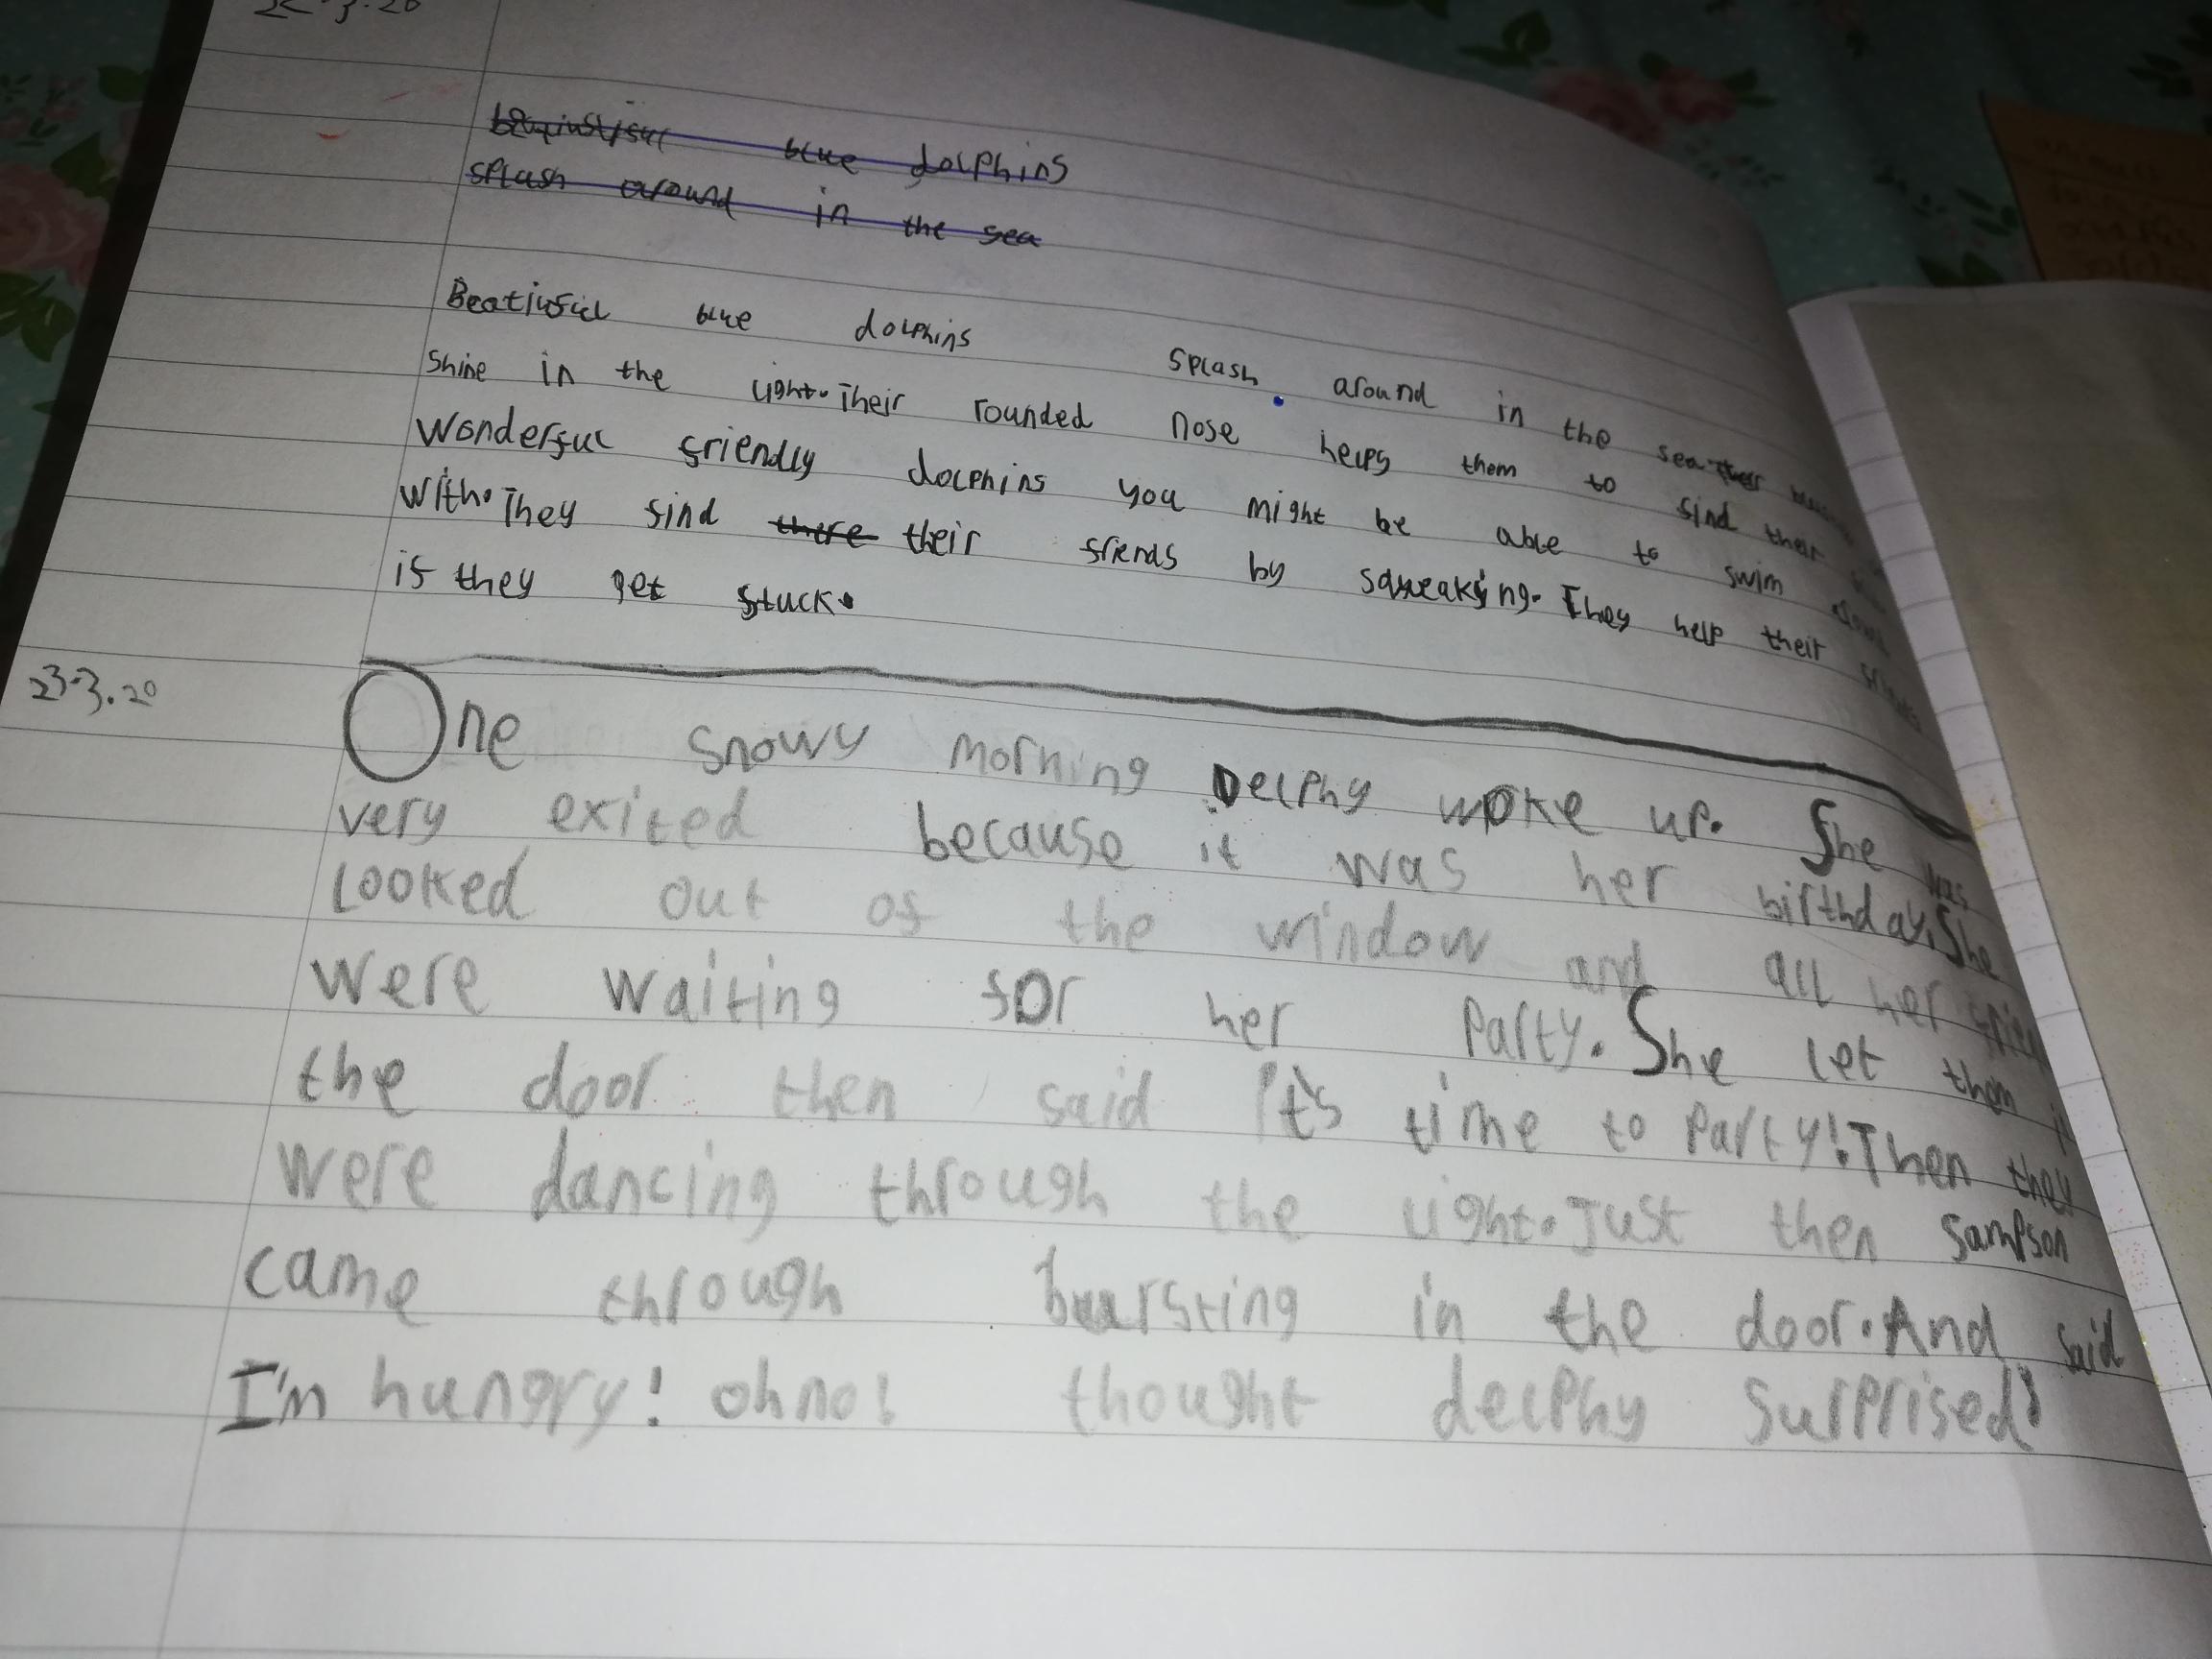 beautiful blue dolphins
splash around in the sea
Beatiuful blue dolphins splash around in the sea.
shine in the light. Their rounded nose helps them to find their
Wonderful friendly dolphins you might be able to swim
with. They find there their friends by squeaking. They help their friends
if they get stuck.
23.3.20
One snowy morning Delphy woke up. She was
very exited because it was her birthday. She
looked out of the window and all her
were waiting for her party. She let them in
the door then said It's time to party! Then they
were dancing through the light. Just then Sampson
came through bursting in the door. And said
I'm hungry! oh no! thought delphy surprised!